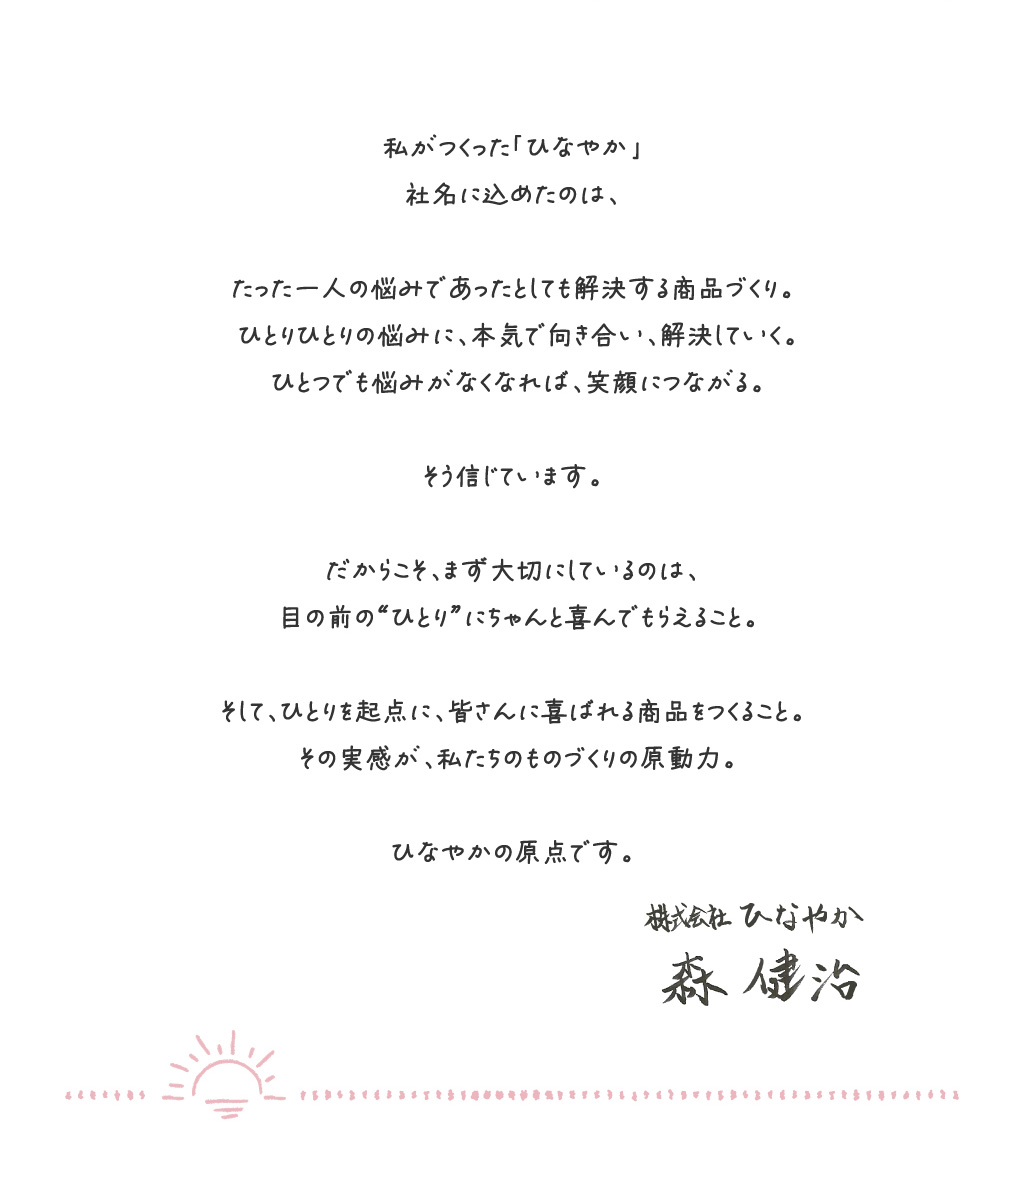 私がつくった「ひなやか」
社名に込めたのは、
たった一人の悩みであったとしても解決する商品づくり。
ひとりひとりの悩みに、本気で向き合い、解決していく。
ひとつでも悩みがなくなれば、笑顔につながる。
そう信じています。
だからこそ、まず大切にしているのは、
目の前の“ひとり”にちゃんと喜んでもらえること。
そして、ひとりを起点に、皆さんに喜ばれる商品をつくること。
その実感が、私たちのものづくりの原動力。
ひなやかの原点です。
株式会社 ひなやか
森 健治